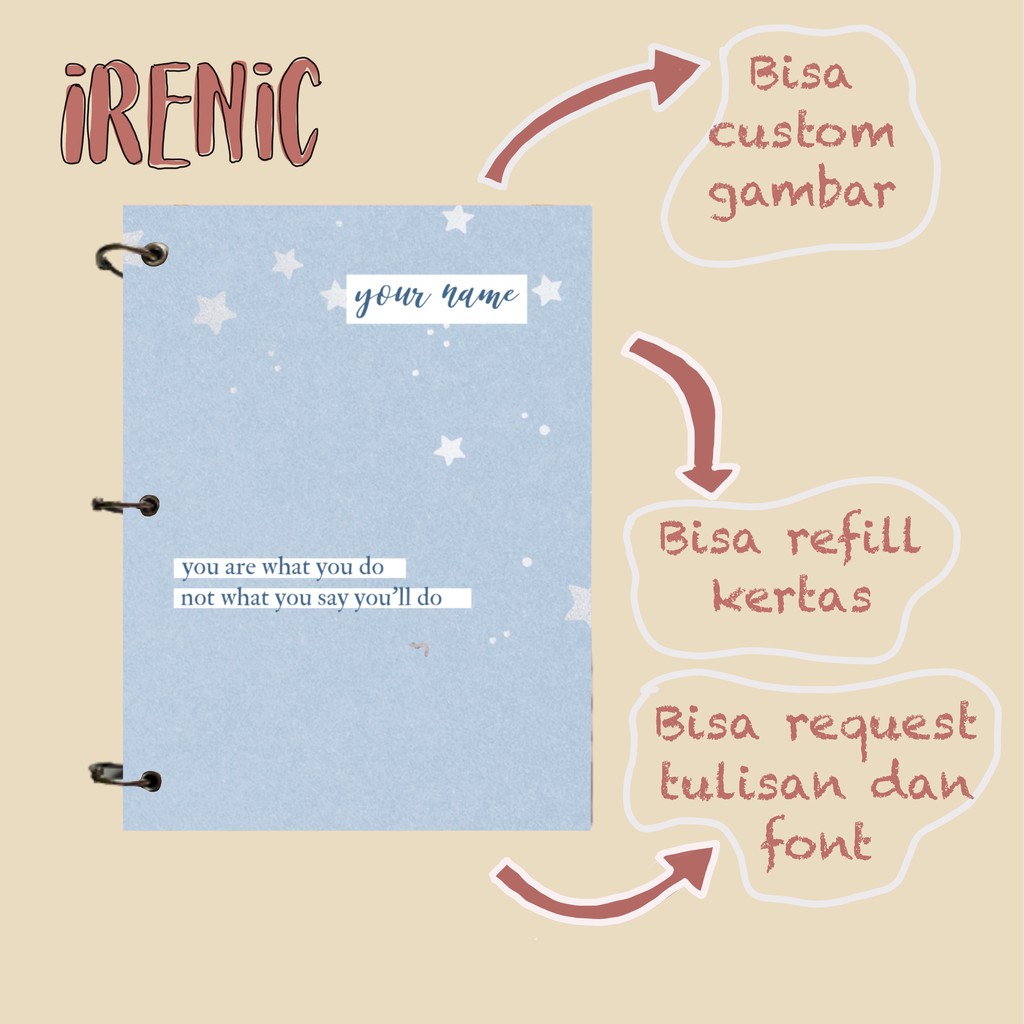 iRENiC
Bisa
custom
gambar
your name
you are what you do
not what you say you'll do
Bisa refill
kertas
Bisa request
tulisan dan
font